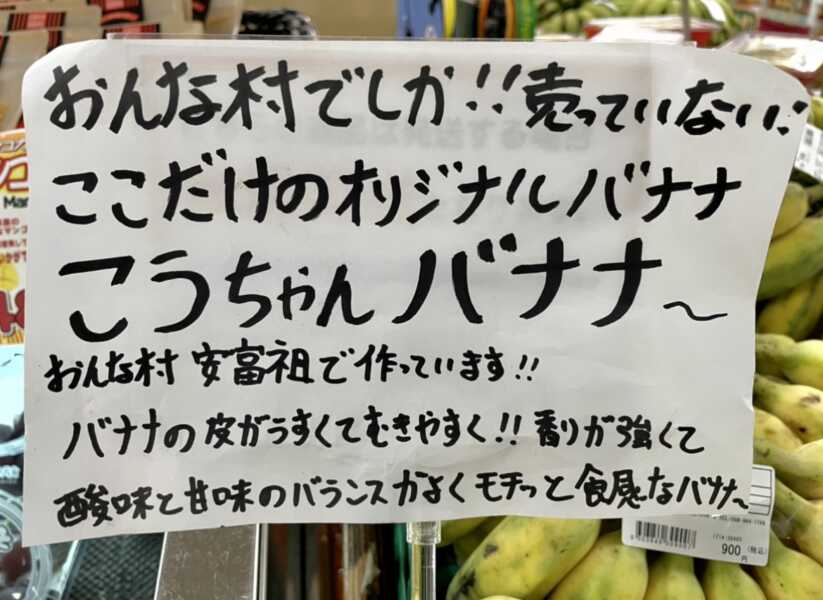 おんな村でしか!!売っていない!!
ここだけのオリジナルバナナ
こうちゃんバナナ〜
おんな村 安富祖で作っています!!
バナナの皮がうすくてむきやすく!!香りが強くて
酸味と甘味のバランスがよくモチっと食感なバナナ〜
Man
900
円
(税込)